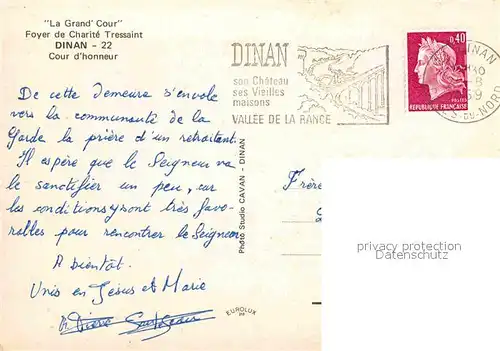 "La Grand' Cour"
Foyer de Charité Tressaint
DINAN - 22
Cour d'honneur
DINAN
son Château
ses Vieilles
maisons
VALLÉE DE LA RANCE
0,40
POSTES
REPUBLIQUE FRANÇAISE
DINAN
CS-DU-NORD
De cette demeure s'envole
vers la communauté de la
Garde la prière d'un retraitant.
Il espère que le Seigneur va
le sanctifier un peu, car
les conditions y sont très favo-
rables pour rencontrer le Seigneur
A bientôt.
Unis en Jésus et Marie
Photo Studio CAVAN - DINAN
Frère
EUROLUX
privacy protection
Datenschutz